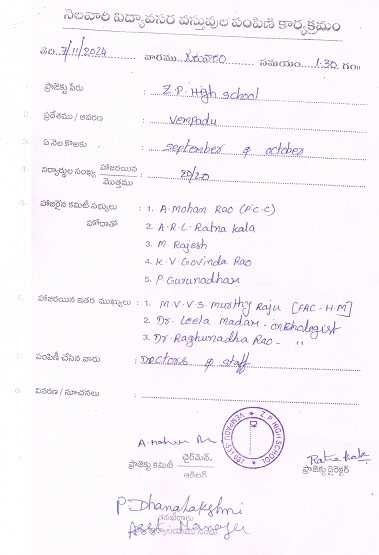 నెలవారి విద్యావసర వస్తువుల పంపిణి కార్యక్రమం
తేది. 7/11/2024 వారము గురువారం సమయం 1.30 గం॥
ప్రాజెక్టు పేరు : Z.P. High school
2. ప్రదేశము / ఆవరణ : Vempadu
3. ఏ నెల కొఱకు : september & october
4. విద్యార్థుల సంఖ్య హాజరయిన / మొత్తము : 20/20
5. హాజరైన కమిటీ సభ్యులు : 1. A. Mohan Rao (P.C.C)
హోదాతో 2. A.R.L. Ratna kala
3. M. Rajesh
4. K.V. Govinda Rao
5. P Gurunadham
6. హాజరయిన ఇతర ముఖ్యులు : 1. M V.V.S. Murthy Raju [FAC-H.M]
2. Dr. Leela Madam - onkhologist
3. Dr. Raghunadha Rao - "
7. పంపిణీ చేసిన వారు : Doctors & staff
8. వివరణ / సూచనలు :
Z.P HIGH SCHOOL
VEMPADU
A. Mohan R
ప్రాజెక్టు కమిటీ ఛైర్మెన్.
Ratnakala
ప్రాజెక్టు డైరెక్టర్
P. Dhanalakshmi
Asst Manager